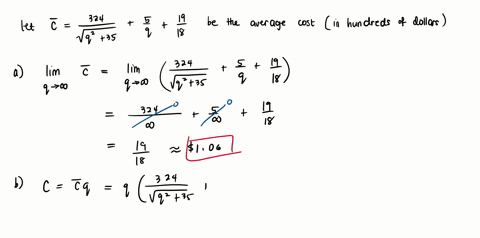 let C̅ = 324/√(q²+35) + 5/q + 19/18 be the average cost (in hundreds of dollars)
a) lim q→∞ C̅ = lim q→∞ (324/√(q²+35) + 5/q + 19/18)
= 324/∞ 0 + 5/∞ 0 + 19/18
= 19/18 ≈ $1.06
b) C = C̅q = q (324/√(q²+35)